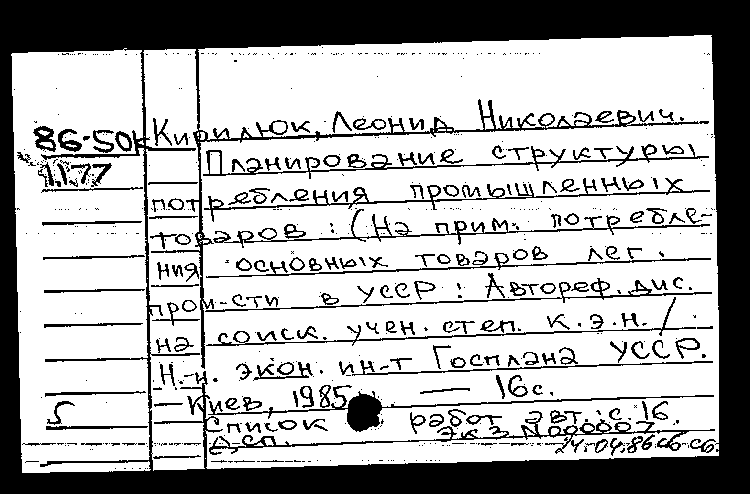 86-50к Кирилюк, Леонид Николаевич.
Планирование структуры
1177
потребления промышленных
товаров : (На прим. потребле-
ния основных товаров лег.
пром-сти в УССР : Автореф. дис.
на соиск. учен. степ. к.э.н. /
Н.-и. экон. ин-т Госплана УССР.
— Киев, 1985. — 16с.
5
Список работ авт.: с. 16.
Д.сп. Экз. N000007
24.04.86